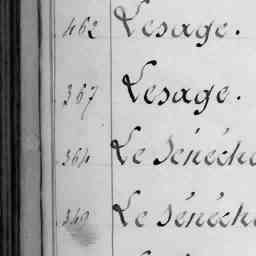 462 Lesage.
367 Lesage.
364 Le Sénéch
340 Le Sénéch